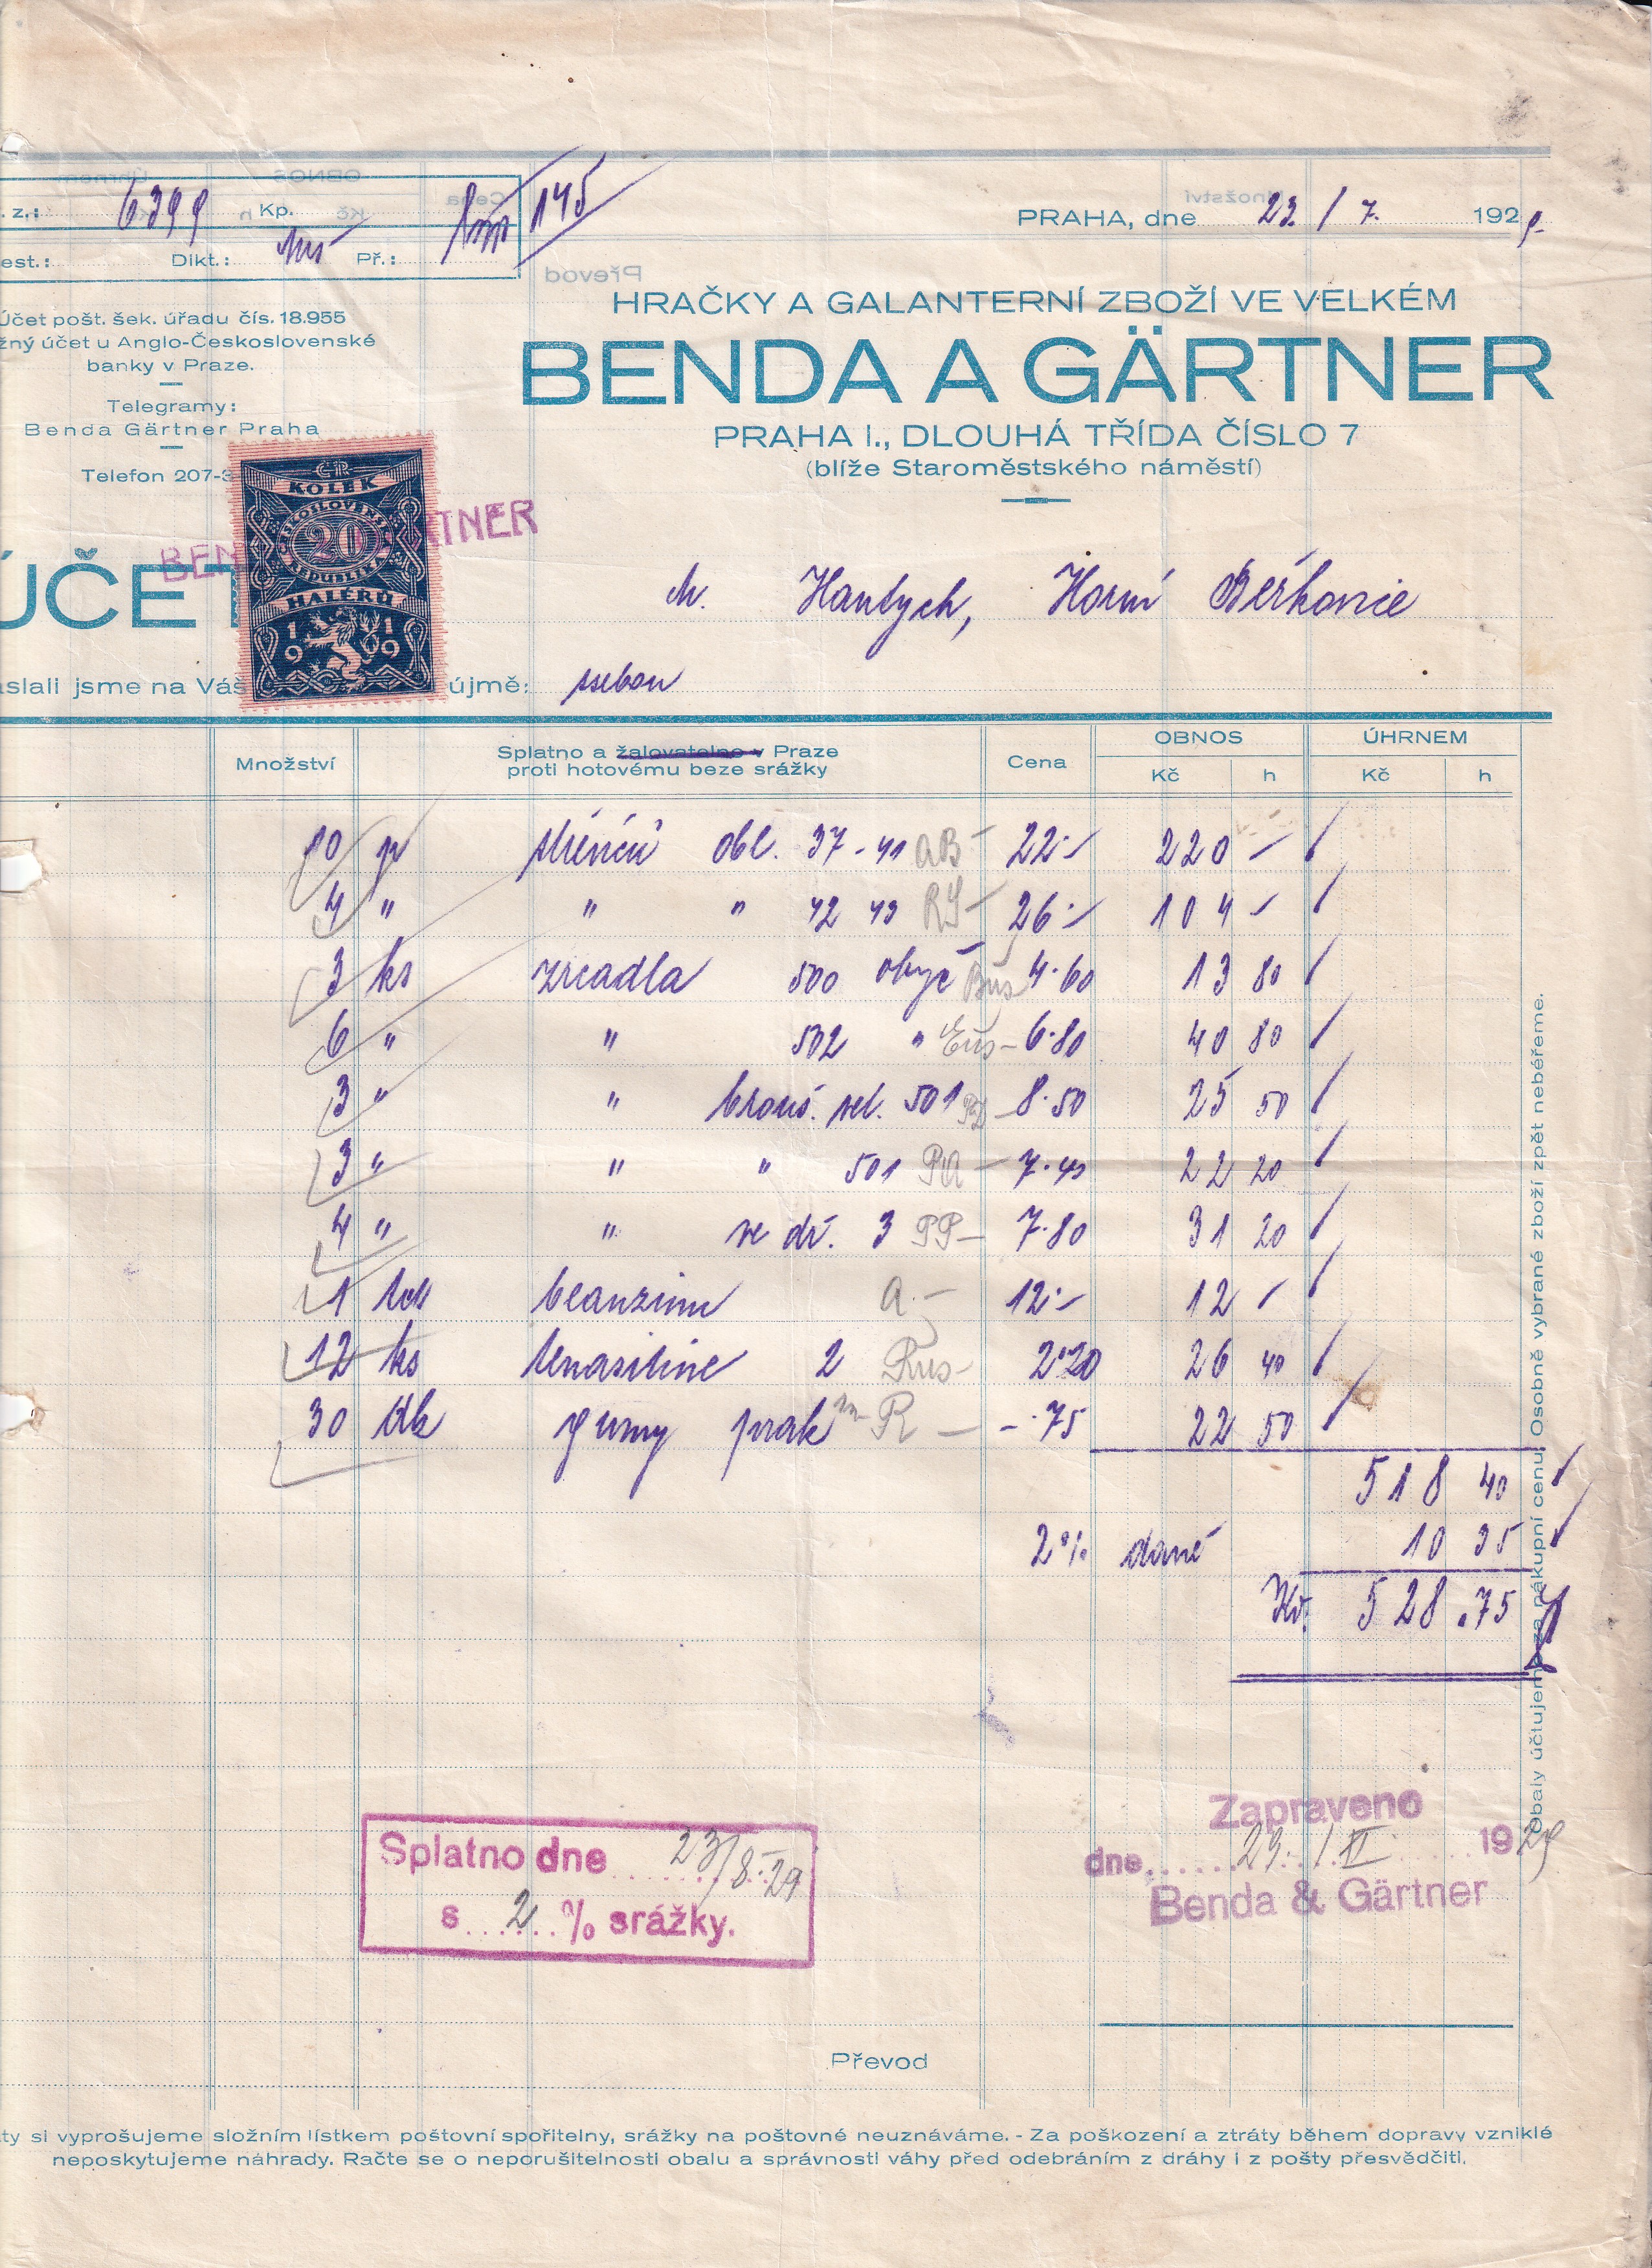 . z.: 6399 Kp. 145
est.: Dikt.: Př.:
PRAHA, dne 23. / 7. 1929.
HRAČKY A GALANTERNÍ ZBOŽÍ VE VELKÉM
BENDA A GÄRTNER
PRAHA I., DLOUHÁ TŘÍDA ČÍSLO 7
(blíže Staroměstského náměstí)
Účet pošt. šek. úřadu čís. 18.955
žný účet u Anglo-Československé
banky v Praze.
Telegramy:
Benda Gärtner Praha
Telefon 207-3
ČR
KOLEK
ČESKOSLOVENSKÁ
20
REPUBLIKA
HALÉŘŮ
1919
BEN RTNER
ÚČET
M. Hantych, Horní Beřkovice
aslali jsme na Váš újmě: sebou
Množství Splatno a žalovatelno v Praze proti hotovému beze srážky Cena OBNOS Kč h ÚHRNEM Kč h
10 p obl. 37-41 AB- 22·- 220 -
4 " " " 42 43 RY- 26·- 104 -
3 ks zrcadla 500 obyč 4·60 13 80
6 " " 502 " 6·80 40 80
3 " " brouš. vel. 501 8·50 25 50
3 " " " 501 PA - 7·40 22 20
4 " " ve dř. 3 PP- 7·80 31 20
1 A.- 12·- 12 -
12 ks 2 Rus- 2·20 26 40
30 dk gumy prak R - -·75 22 50
518 40
2% daně 10 35
Kč. 528.75
Splatno dne 23/8.29
s 2 % srážky.
Zapraveno
dne 29. / 1929
Benda & Gärtner
Převod
Obaly účtujeme za nákupní cenu. Osobně vybrané zboží zpět nebéřeme.
ty si vyprošujeme složním lístkem poštovní spořitelny, srážky na poštovné neuznáváme. - Za poškození a ztráty během dopravy vzniklé
neposkytujeme náhrady. Račte se o neporušitelnosti obalu a správnosti váhy před odebráním z dráhy i z pošty přesvědčiti.